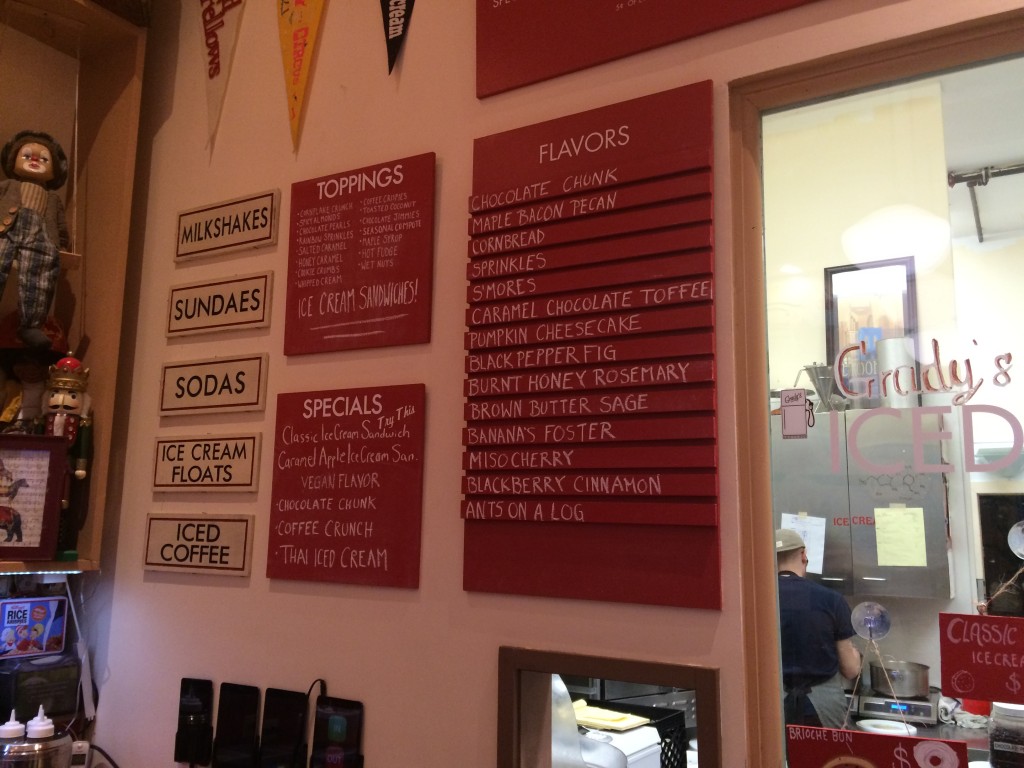 MILKSHAKES
SUNDAES
SODAS
ICE CREAM
FLOATS
ICED
COFFEE
TOPPINGS
CHOCOLATE PEARLS
RAINBOW SPRINKLES
SALTED CARAMEL
HONEY CARAMEL
COOKIE CRUMBS
WHIPPED CREAM
TOASTED COCONUT
CHOCOLATE JIMMIES
SEASONAL COMPOTE
MAPLE SYRUP
HOT FUDGE
WET NUTS
ICE CREAM SANDWICHES!
SPECIALS
Try This
Classic Ice Cream Sandwich
Caramel Apple Ice Cream San.
VEGAN FLAVOR
· CHOCOLATE CHUNK
· COFFEE CRUNCH
· THAI ICED CREAM
FLAVORS
CHOCOLATE CHUNK
MAPLE BACON PECAN
CORNBREAD
SPRINKLES
S'MORES
CARAMEL CHOCOLATE TOFFEE
PUMPKIN CHEESECAKE
BLACK PEPPER FIG
BURNT HONEY ROSEMARY
BROWN BUTTER SAGE
BANANA'S FOSTER
MISO CHERRY
BLACKBERRY CINNAMON
ANTS ON A LOG
Grady's
ICED
CLASSIC
ICE CREA
$
BRIOCHE BUN
$
RICE